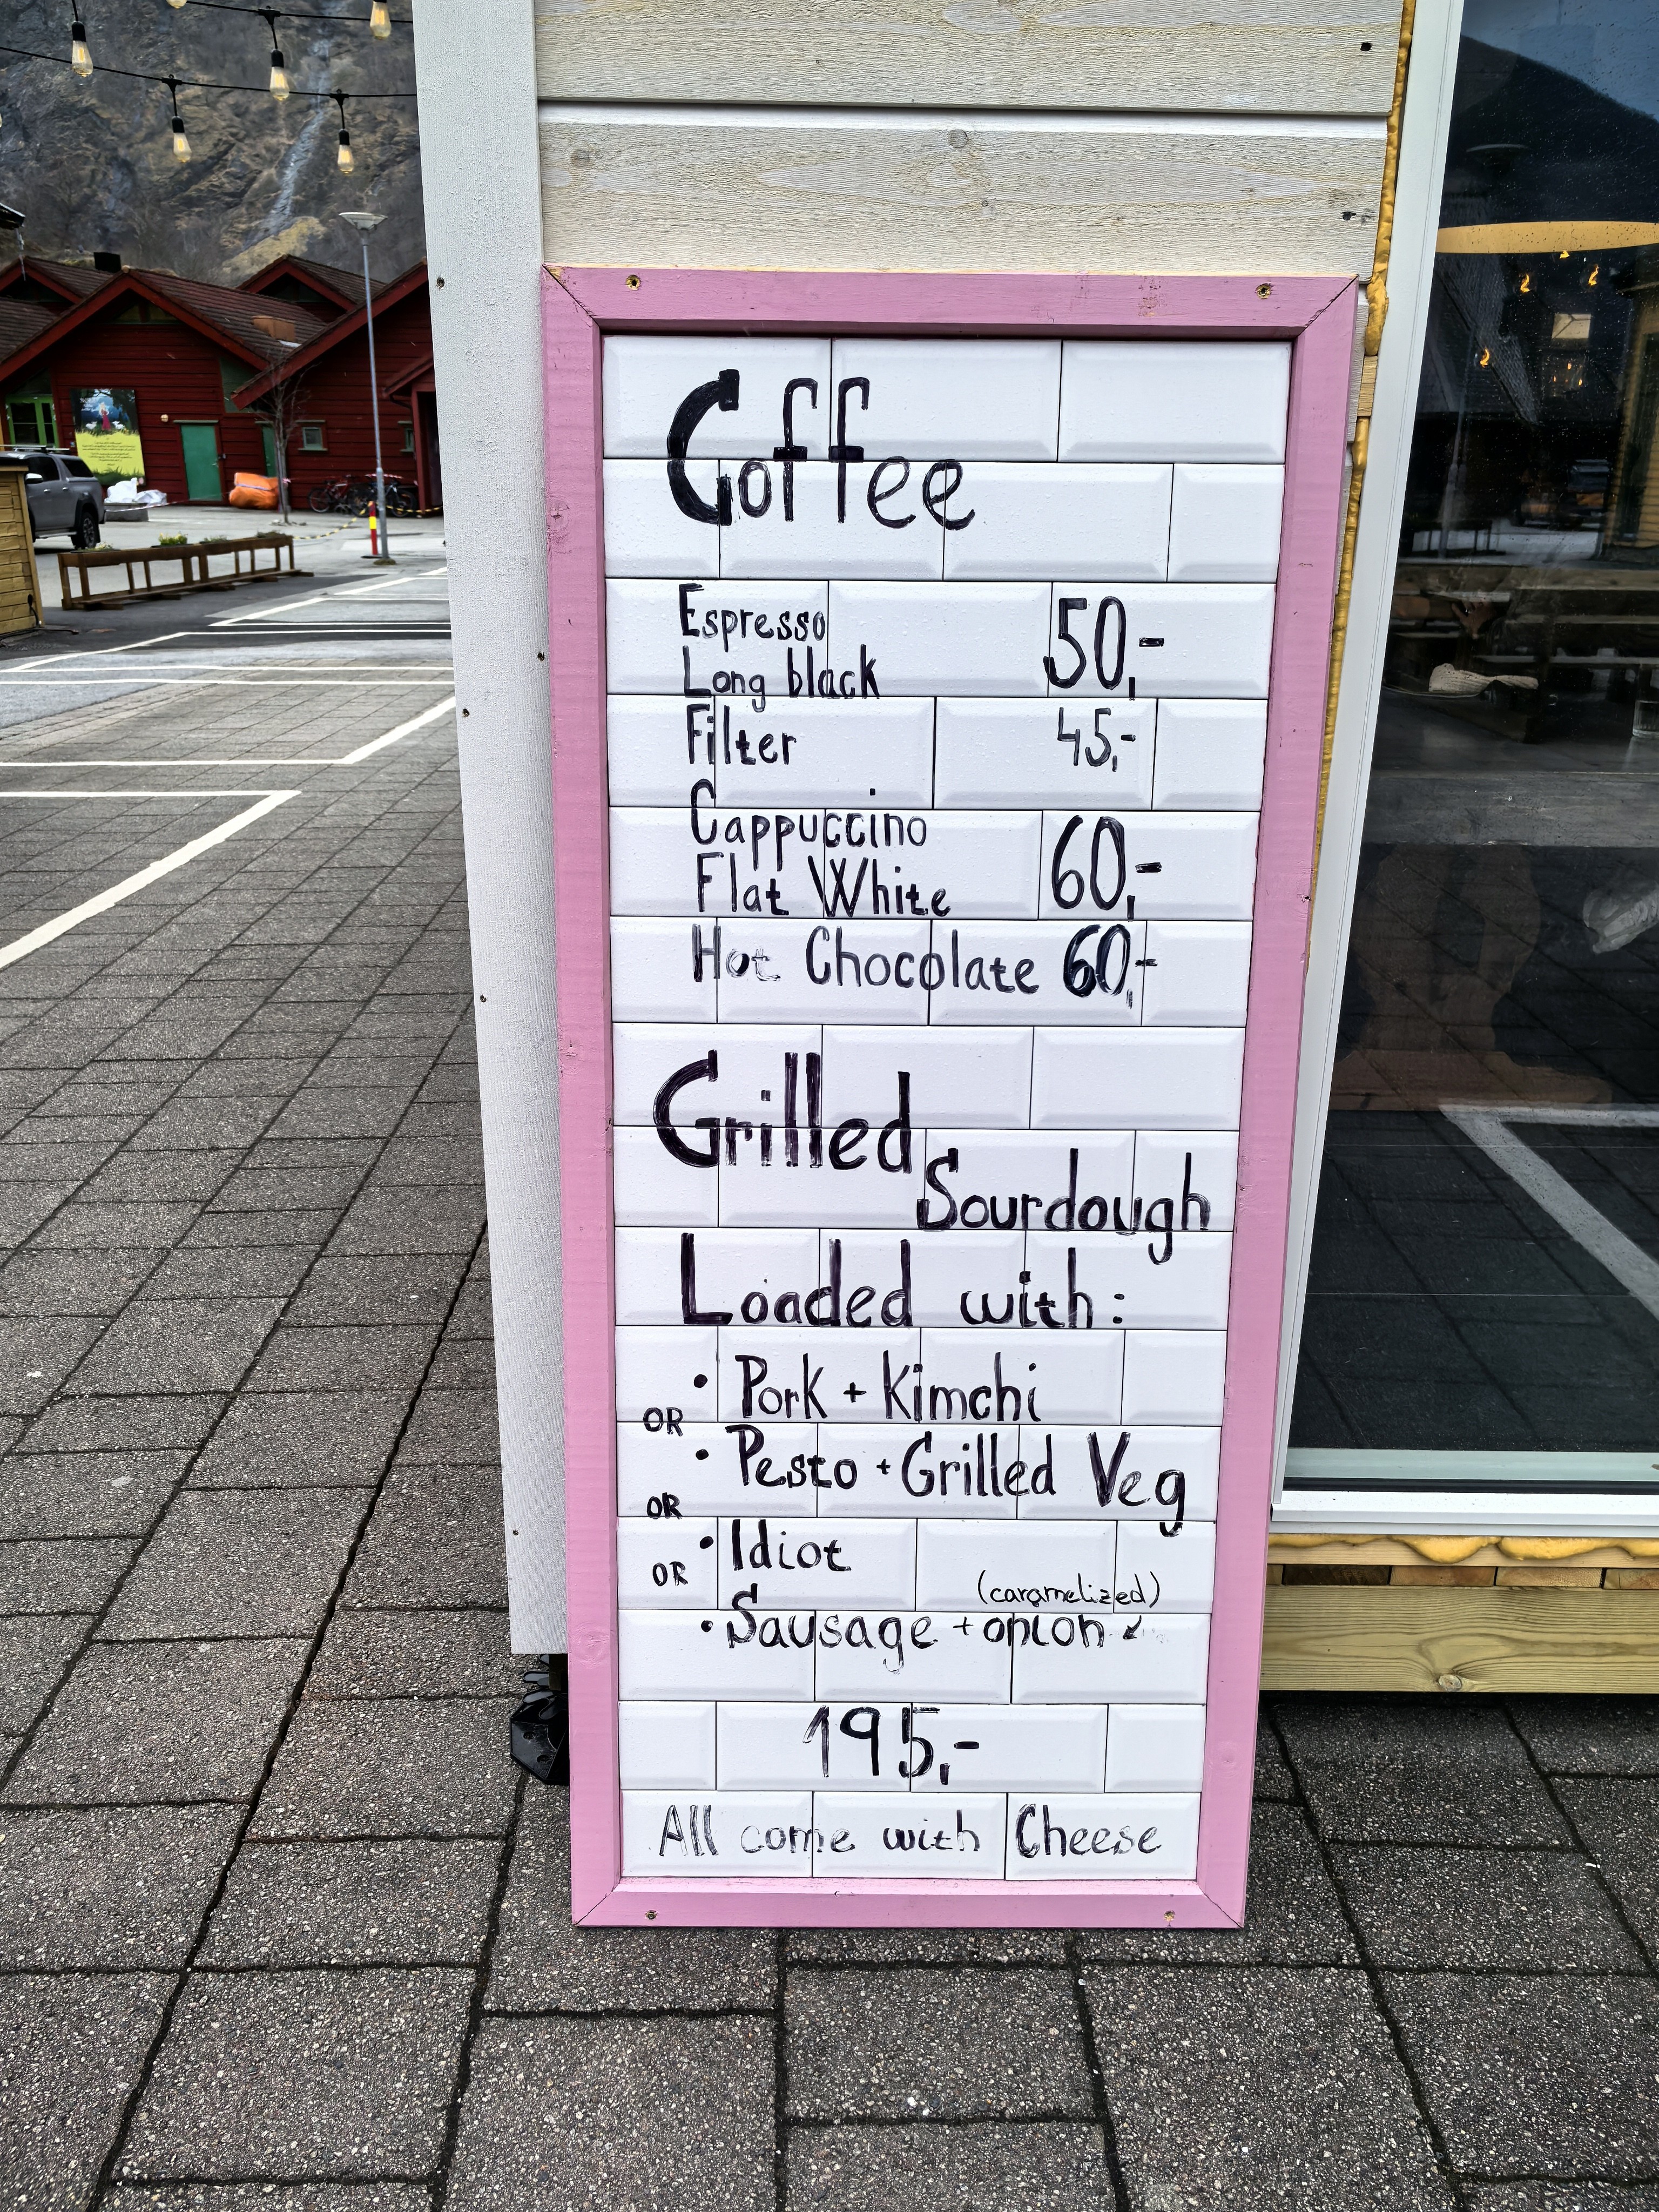 Coffee
Espresso
Long black 50,-
Filter 45,-
Cappuccino
Flat White 60,-
Hot Chocolate 60,-
Grilled
Sourdough
Loaded with:
• Pork + Kimchi
OR
• Pesto + Grilled Veg
OR
• Idiot
OR
(caramelized)
• Sausage + onion ↙
195,-
All come with Cheese